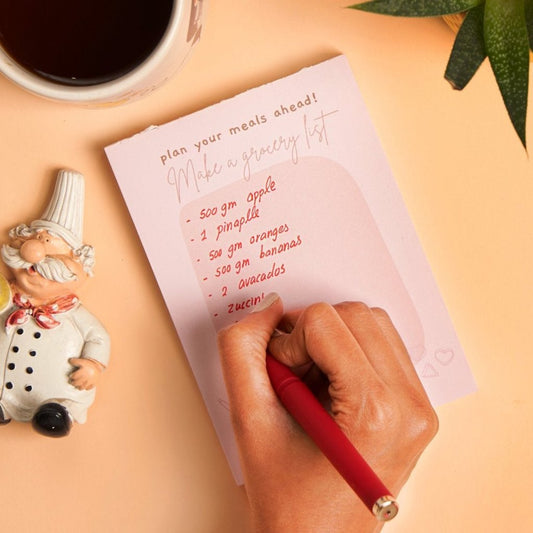 plan your meals ahead!
Make a grocery list
- 500 gm apple
- 1 pinaplle
- 500 gm oranges
- 500 gm bananas
- 2 avacados
- zuccini